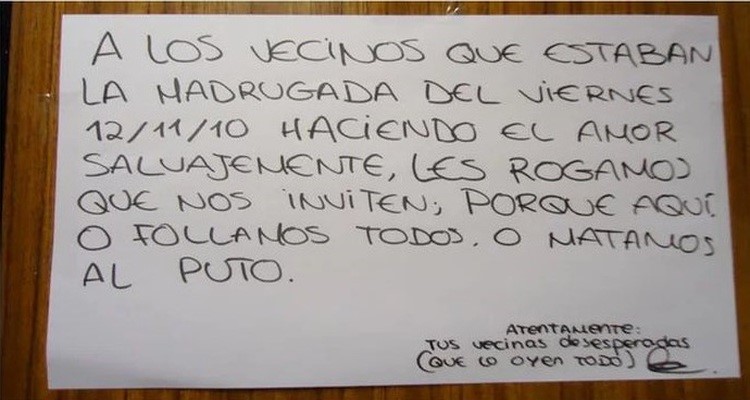 A LOS VECINOS QUE ESTABAN
LA MADRUGADA DEL VIERNES
12/11/10 HACIENDO EL AMOR
SALVAJEMENTE, LES ROGAMOS
QUE NOS INVITEN; PORQUE AQUÍ.
O FOLLAMOS TODOS. O MATAMOS
AL PUTO.
ATENTAMENTE:
TUS vecinas desesperadas
(QUE LO OYEN TODO)